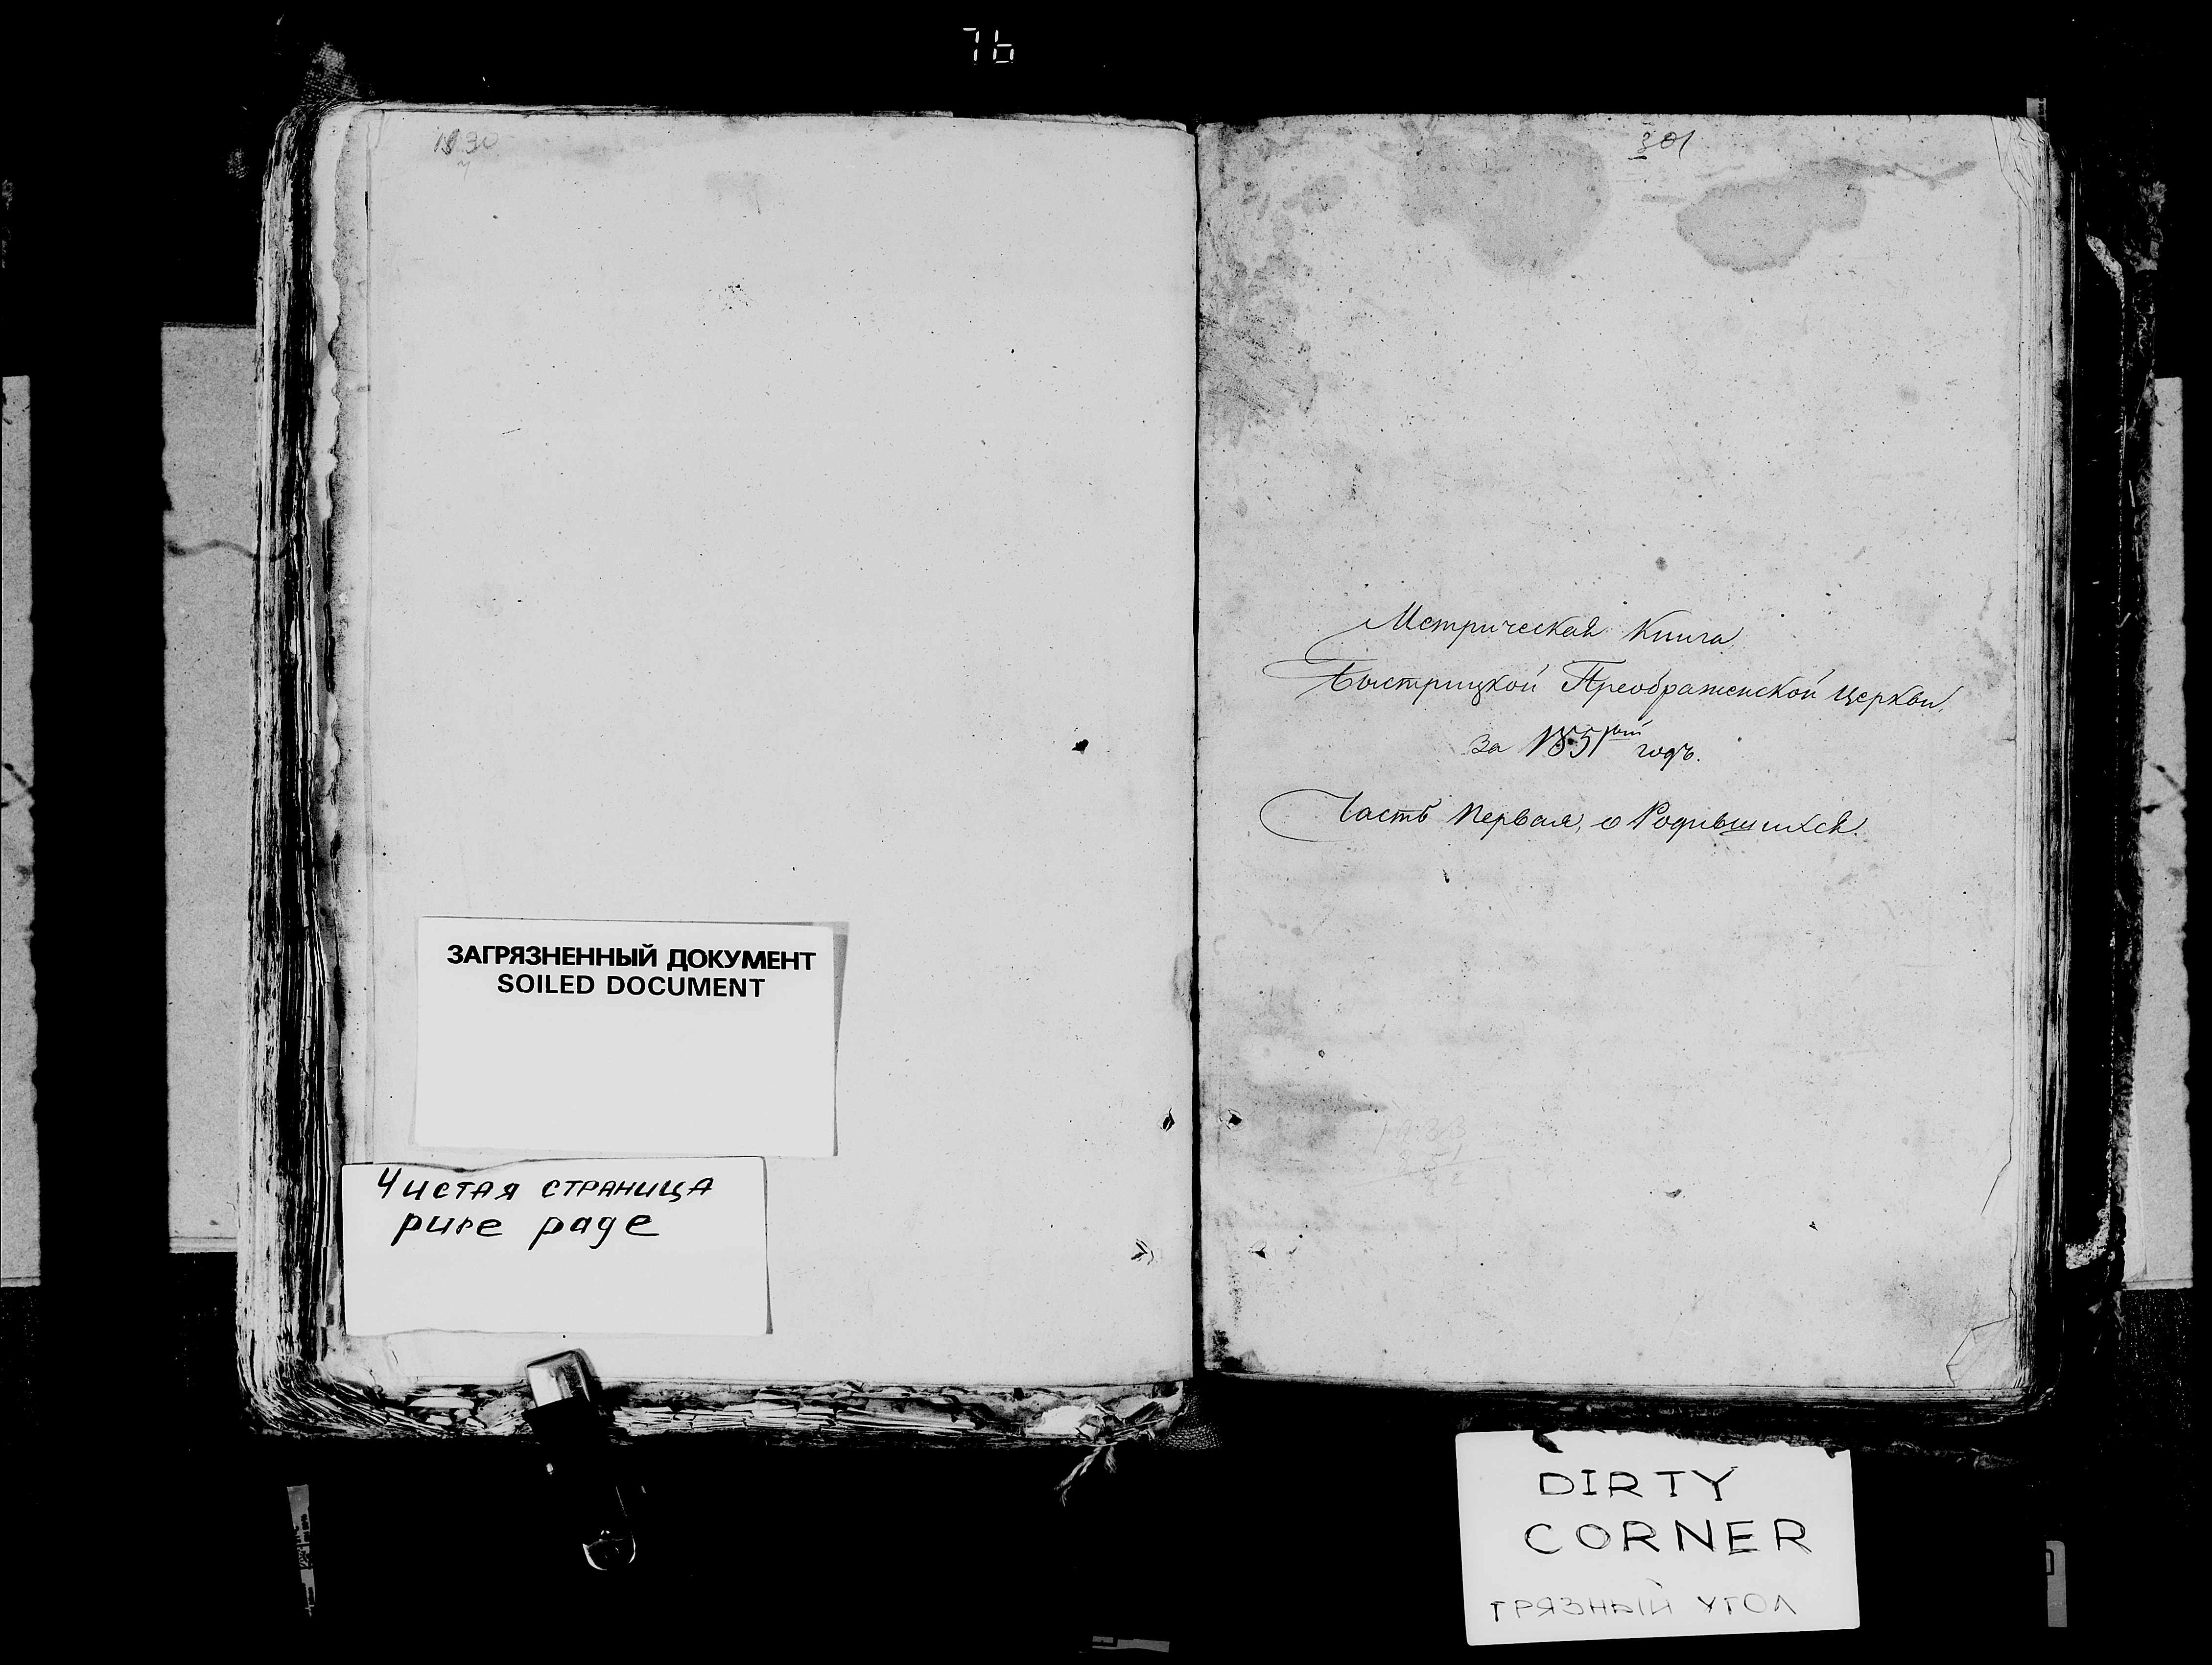 76
1830
ЗАГРЯЗНЕННЫЙ ДОКУМЕНТ
SOILED DOCUMENT
Чистая страница
pure page
301
Метрическая Книга
Быстрицкой Преображенской Церкви,
за 1851рый годъ.
Часть Первая, о Родившихся.
1933
DIRTY
CORNER
ГРЯЗНЫЙ УГОЛ